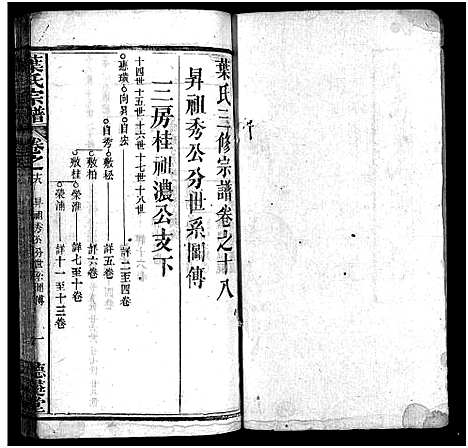 葉氏三修宗譜卷之十八
昇祖秀公分世系圖傳
三房桂祖濃公支下
十四世十五世十六世十七世十八世
惠環 向具 自宏 詳二至四卷
自秀 敷松 詳五卷
敷柏 詳六卷
敷桂 榮淮 詳七至十卷
榮湳 詳十一至十三卷
葉氏宗譜 卷之十八 昇祖秀公分世系圖傳 一